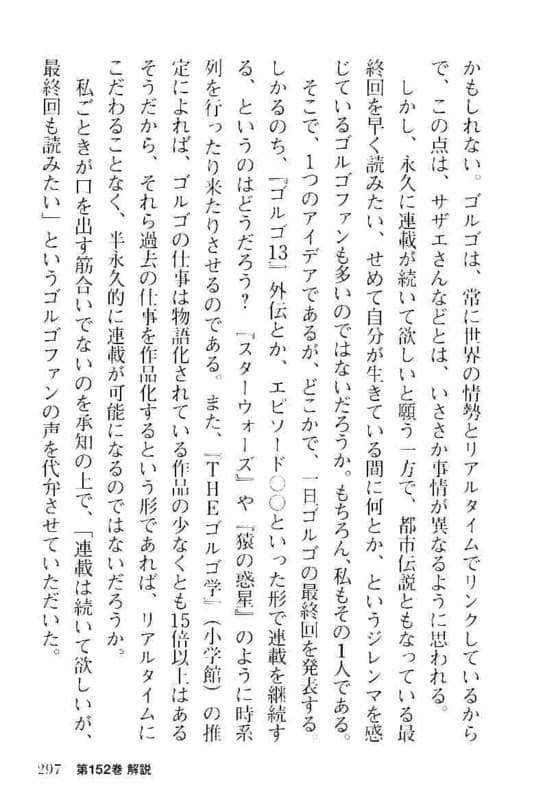 かもしれない。ゴルゴは、常に世界の情勢とリアルタイムでリンクしているから
で、この点は、サザエさんなどとは、いささか事情が異なるように思われる。
しかし、永久に連載が続いて欲しいと願う一方で、都市伝説ともなっている最
終回を早く読みたい、せめて自分が生きている間に何とか、というジレンマを感
じているゴルゴファンも多いのではないだろうか。もちろん、私もその1人である。
そこで、1つのアイデアであるが、どこかで、一旦ゴルゴの最終回を発表する。
しかるのち、『ゴルゴ13』外伝とか、エピソード○○といった形で連載を継続す
る、というのはどうだろう? 『スターウォーズ』や『猿の惑星』のように時系
列を行ったり来たりさせるのである。また、『THEゴルゴ学』(小学館)の推
定によれば、ゴルゴの仕事は物語化されている作品の少なくとも15倍以上はある
そうだから、それら過去の仕事を作品化するという形であれば、リアルタイムに
こだわることなく、半永久的に連載が可能になるのではないだろうか。
私ごときが口を出す筋合いでないのを承知の上で、「連載は続いて欲しいが、
最終回も読みたい」というゴルゴファンの声を代弁させていただいた。
297 第152巻 解説